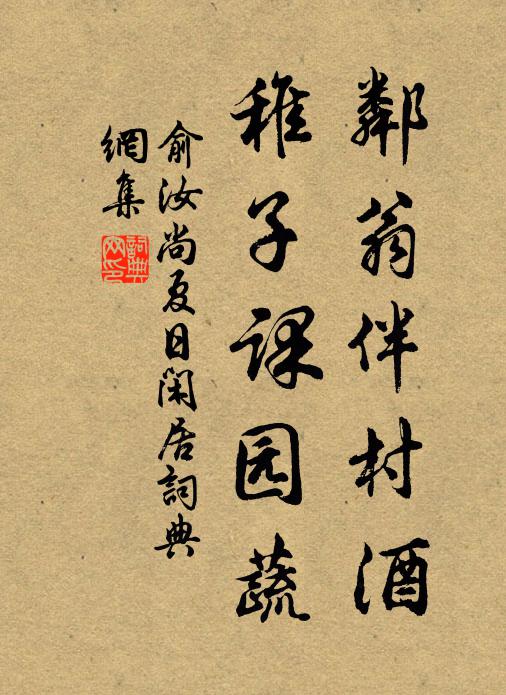 鄰翁伴村酒
稚子課园蔬
俞汝尚夏日閑居詞典
網集
詞典
网印